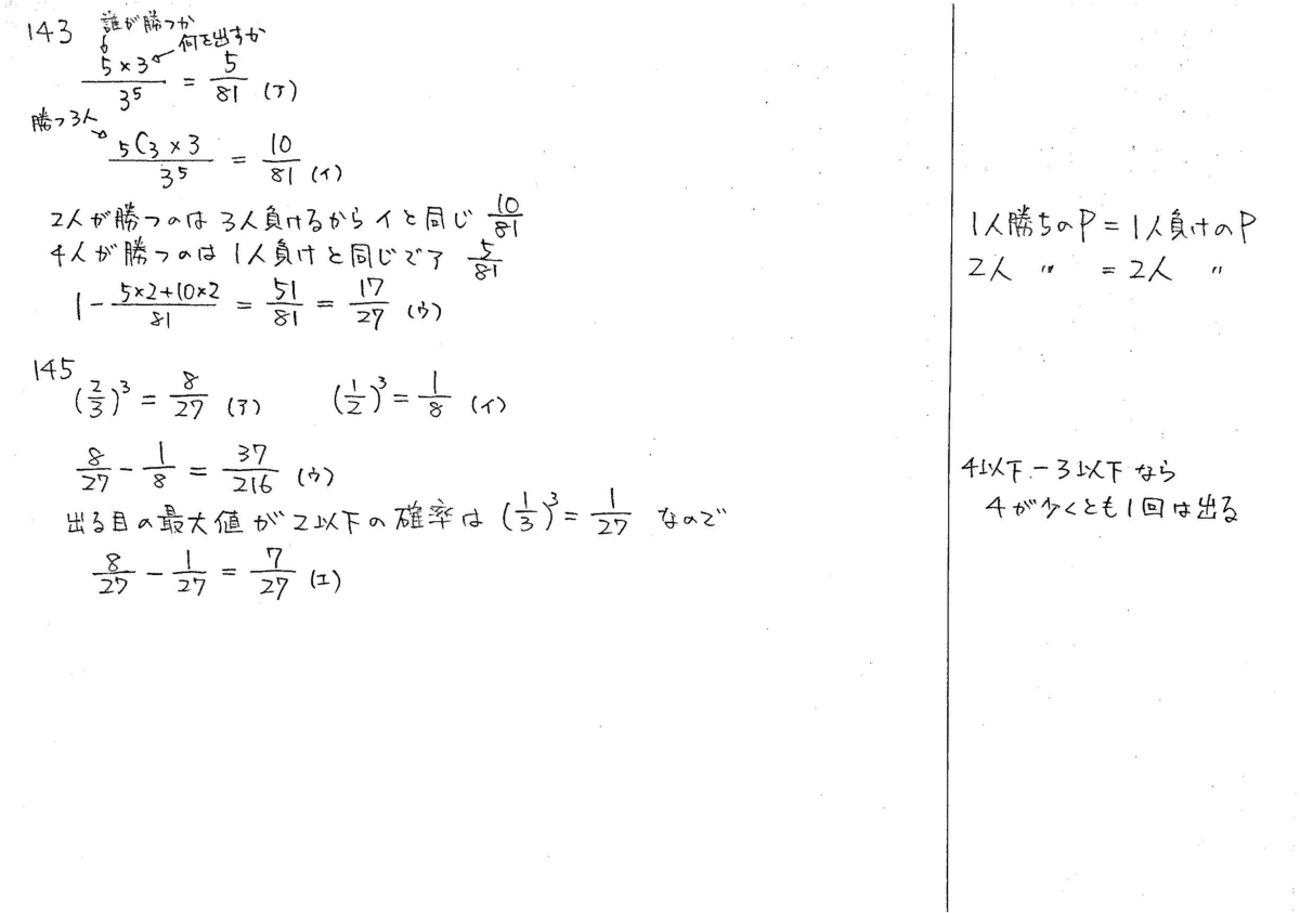 143 誰が勝つか
何を出すか
5×3/3^5 = 5/81 (ア)
勝つ3人
5C3×3/3^5 = 10/81 (イ)
2人が勝つのは3人負けるからイと同じ 10/81
4人が勝つのは1人負けと同じでア 5/81
1 - 5×2+10×2/81 = 51/81 = 17/27 (ウ)
145
(2/3)^3 = 8/27 (ア) (1/2)^3 = 1/8 (イ)
8/27 - 1/8 = 37/216 (ウ)
出る目の最大値が2以下の確率は (1/3)^3 = 1/27 なので
8/27 - 1/27 = 7/27 (エ)
1人勝ちのP = 1人負けのP
2人 〃 = 2人 〃
4以下-3以下なら
4が少くとも1回は出る